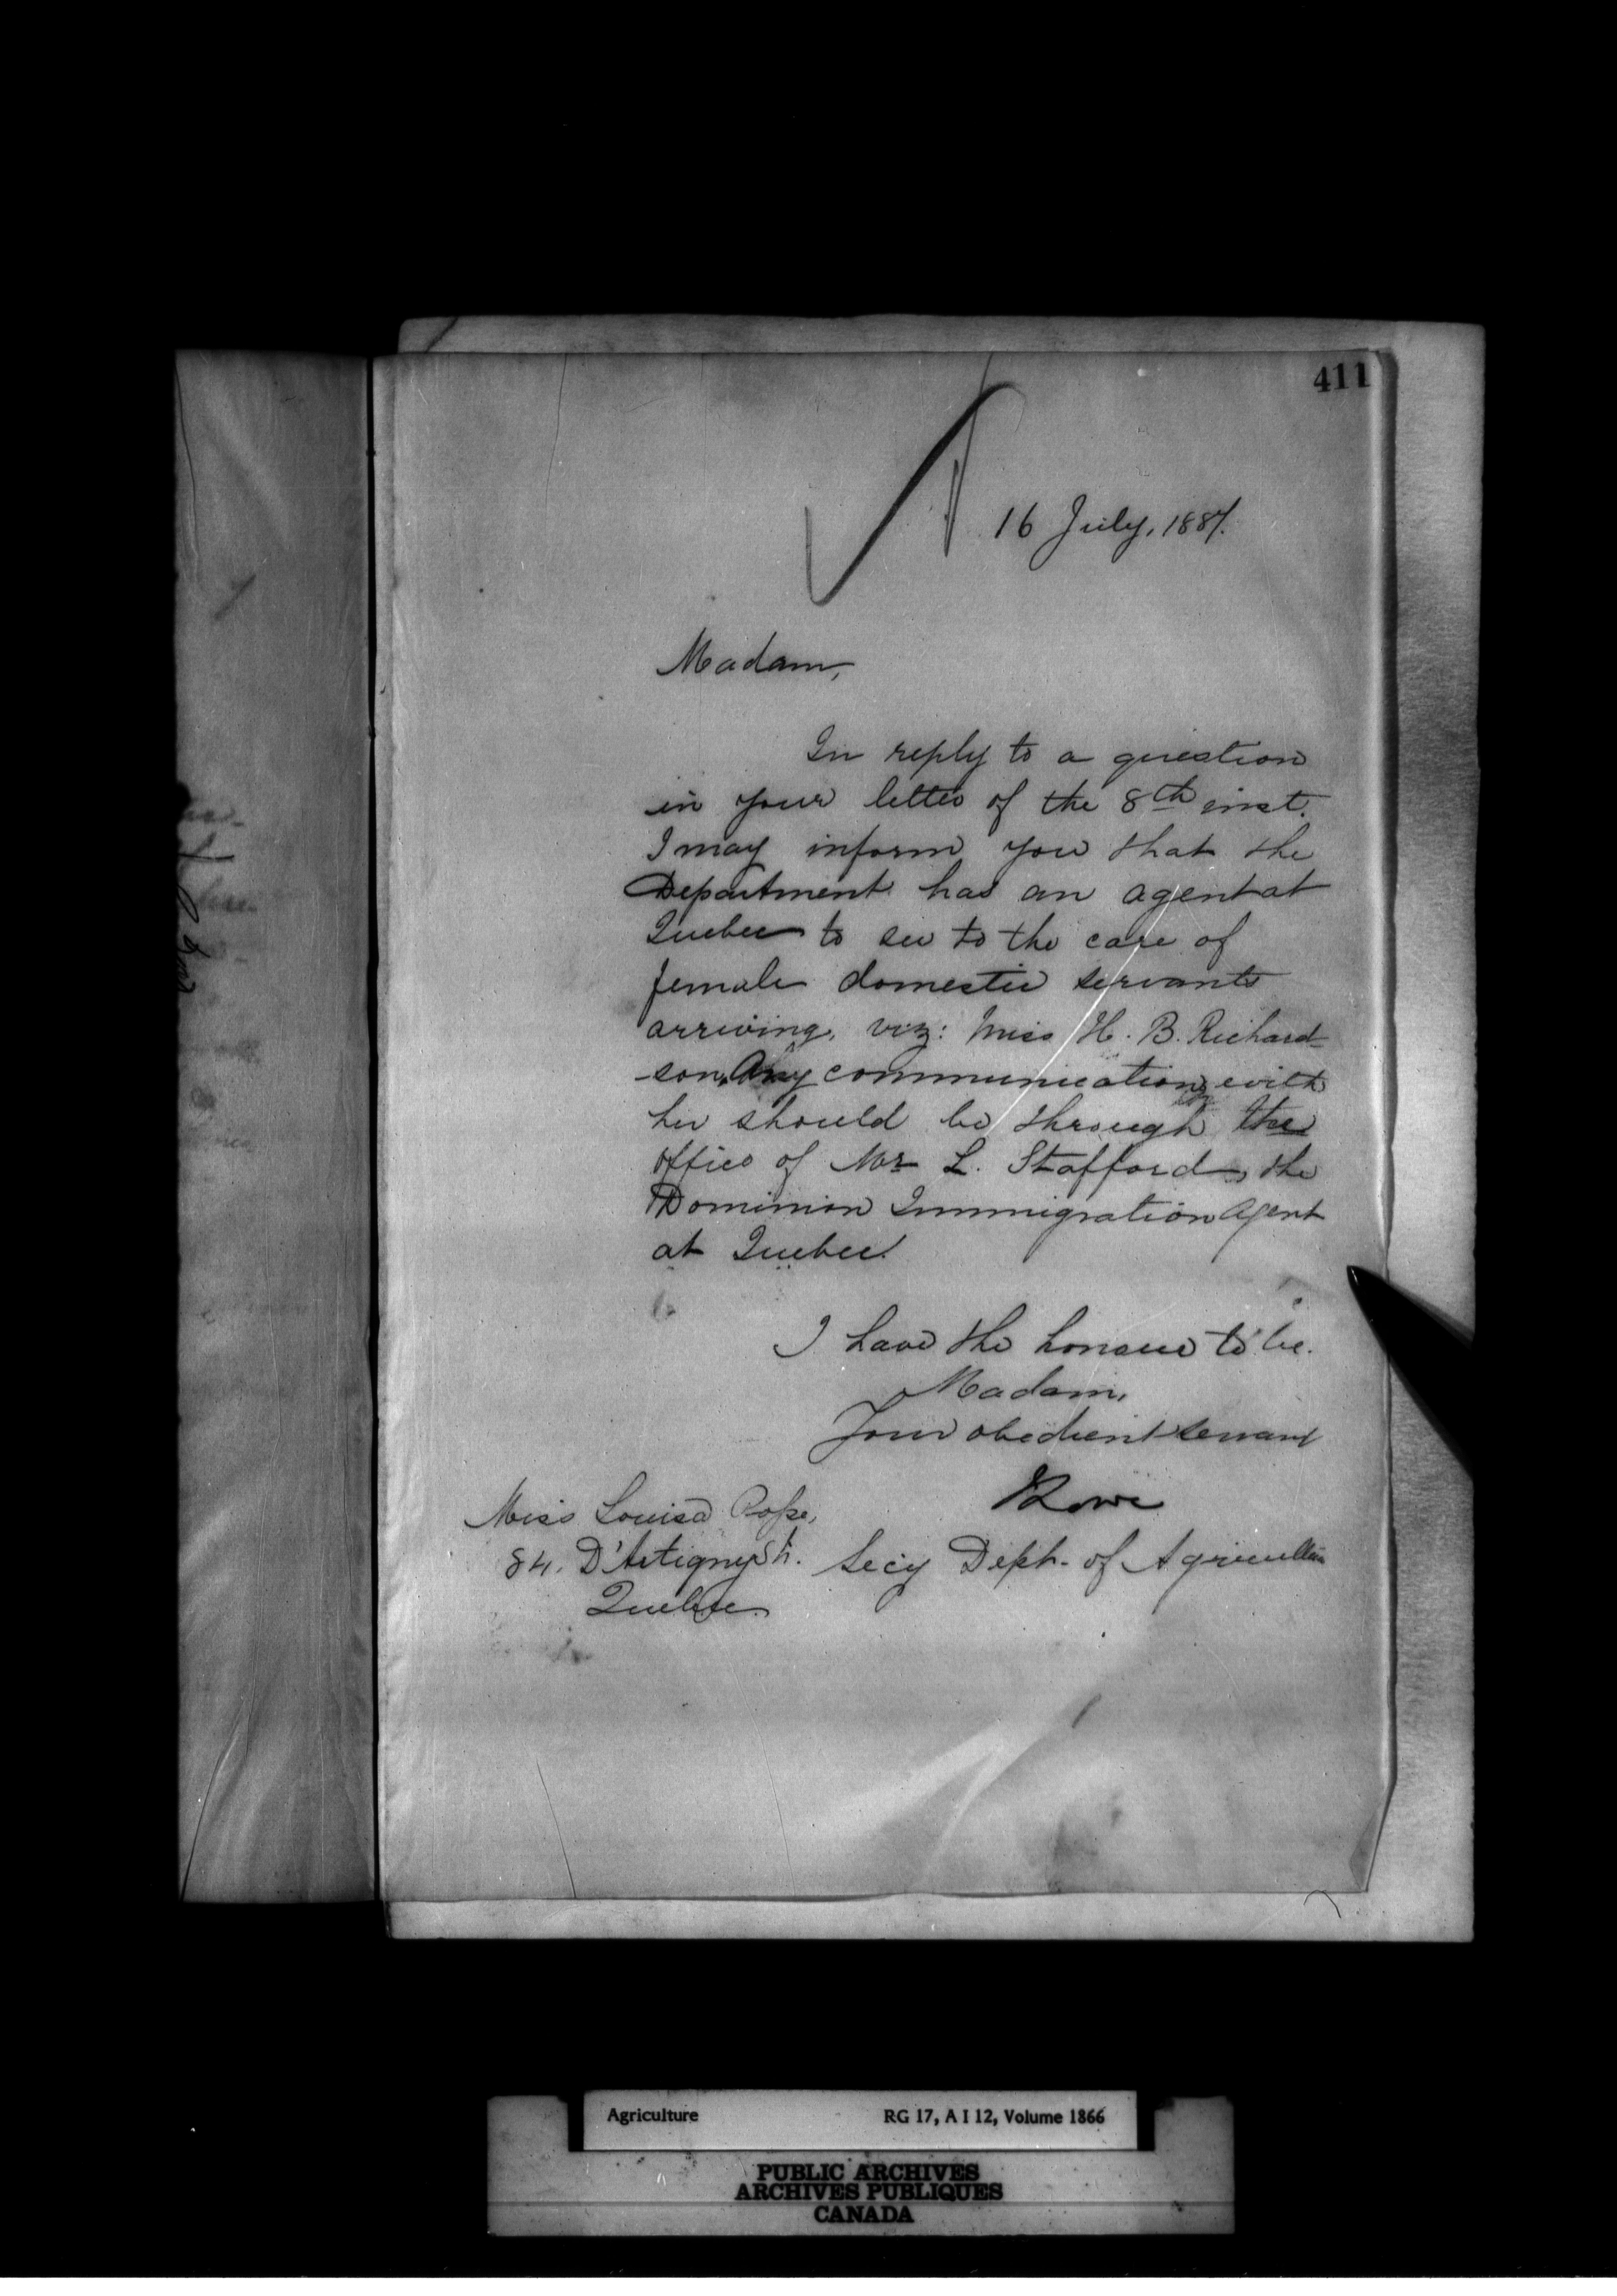 411
16 July, 1887.
Madam,
In reply to a question
in your letter of the 8th inst.
I may inform you that the
Department has an agent at
Quebec to see to the care of
female domestic servants
arriving, viz: Miss H. B. Richard-
son. Any communication with
her should be through the
office of Mr L. Stafford, the
Dominion Immigration Agent
at Quebec.
I have the honour to be.
Madam,
Your obedient servant
Lowe
Miss Louisa Pope,
84. D'Artigny St.
Secy Dept. of Agriculture
Quebec
Agriculture RG 17, A I 12, Volume 1866
PUBLIC ARCHIVES
ARCHIVES PUBLIQUES
CANADA